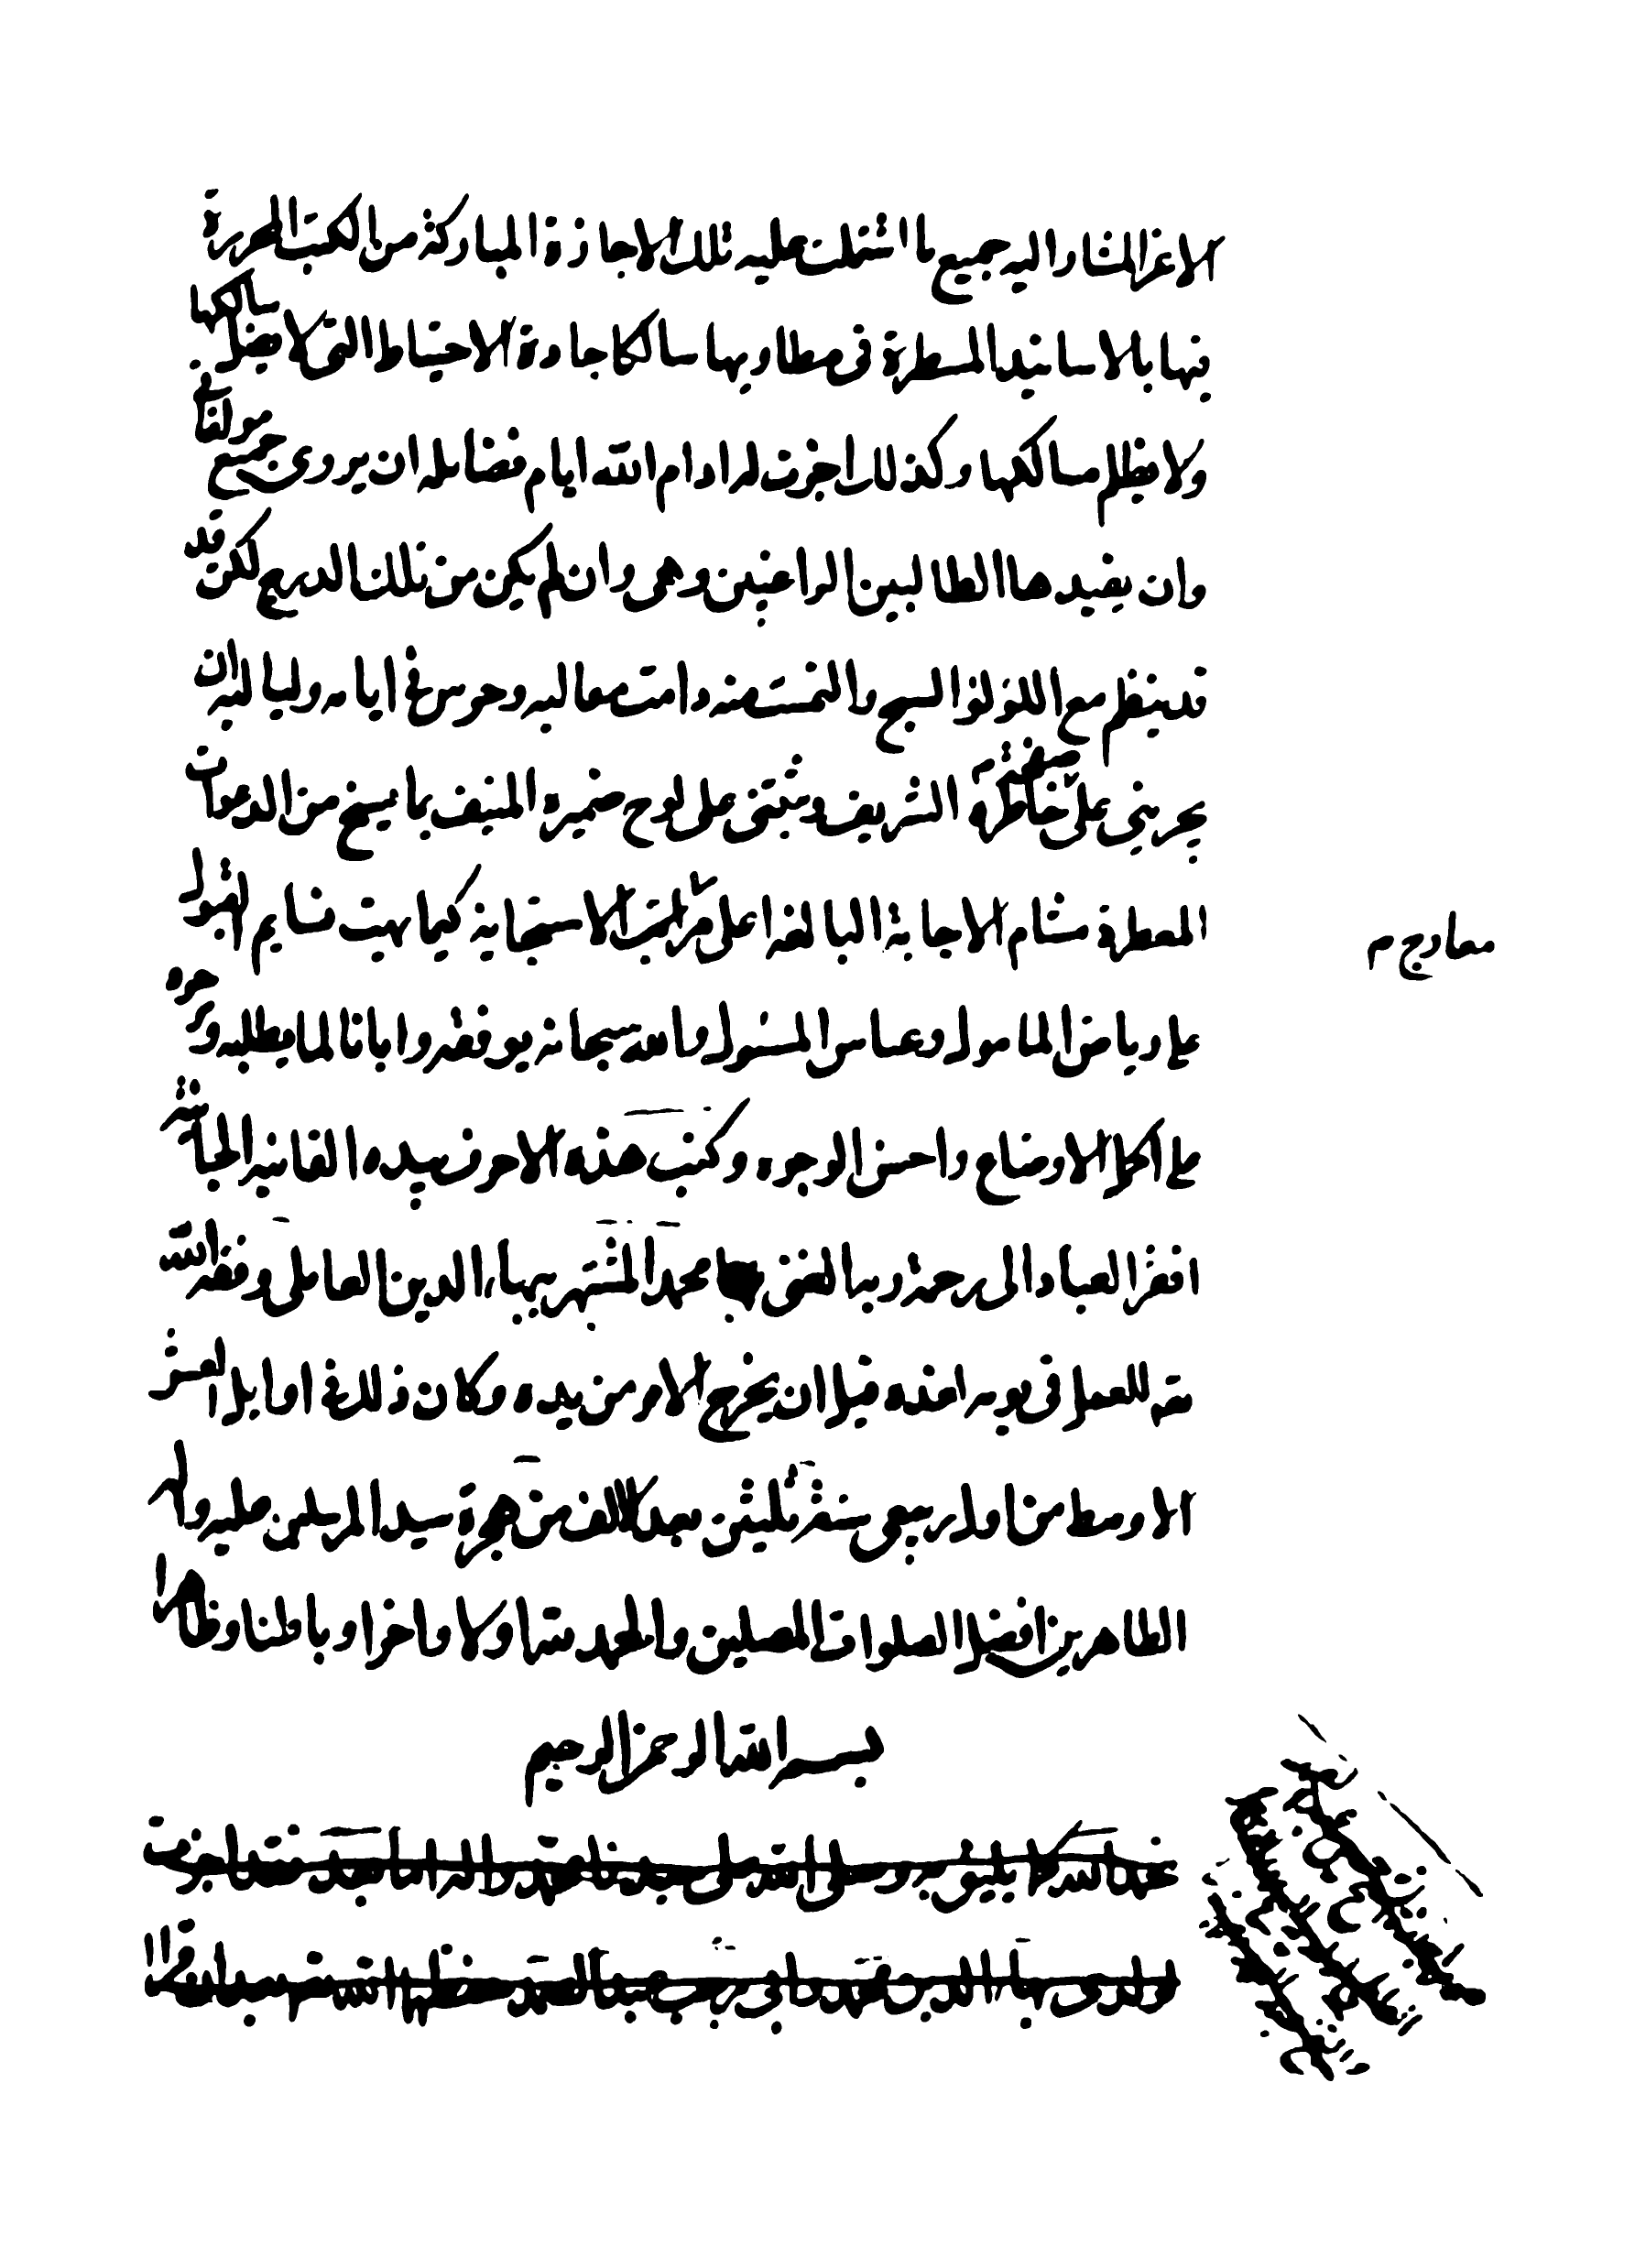 الاعز المشار اليه جميع ما اشتملت عليه تلك الاجازة المباركة من الكتب المحررة
فيها بالاسانيد المسطرة في مطاويها سالكا جادة الاحتياط التي لا يضل سالكها
ولا يظلم مسالكها وكذلك اجزت له ادام الله ايام فضايله ان يروى جميع مولفاتي
وان يفيدها الطالبين الراغبين وهى وان لم يكن من تلك الدرج لكن قد
قد ينظم مع اللؤلؤ السبج والتمست منه دامت معاليه وحرس في ايامه ولياليه ان
يجريني على صفحة خاطره الشريف ويثبتني على لوح ضميره المنيف بما يسنح من الدعوات
المعطرة مشام الاجابة البالغة اعلى مراتب الاستجابة كيما يهب نسايم القبول
على رياض المامول وغياض المسئول والله سبحانه يوفقه وايانا لما يطلبه ويرجوه
على اكمل الاوضاع واحسن الوجوه وكتب هذه الاحرف بيده الفانية الجانية
افقر العباد الى رحمة ربه الغني محمد المشتهر ببهاء الدين العاملى وفقه الله
للعمل في يومه لغده قبل ان يخرج الامر من يده وكان ذلك في اوايل العشر
الاوسط من اول ربيعي سنة ثلثين بعد الالف من هجرة سيد المرسلين عليه واله
الطاهرين افضل صلوات المصلين والحمد لله اولا واخرا وباطنا وظاهرا
معارج م
بسم الله الرحمن الرحيم